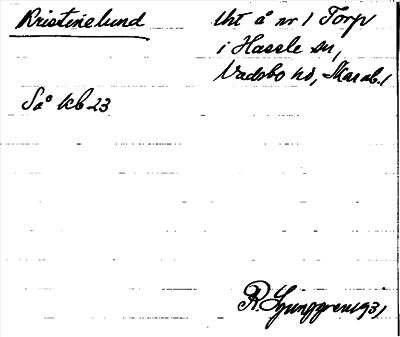 Kristinelund
Lht å nr 1 Torp
i Hassle sn,
Vadsbo hd, Skarab. l
Så kb 23
R. Ljunggren 1931